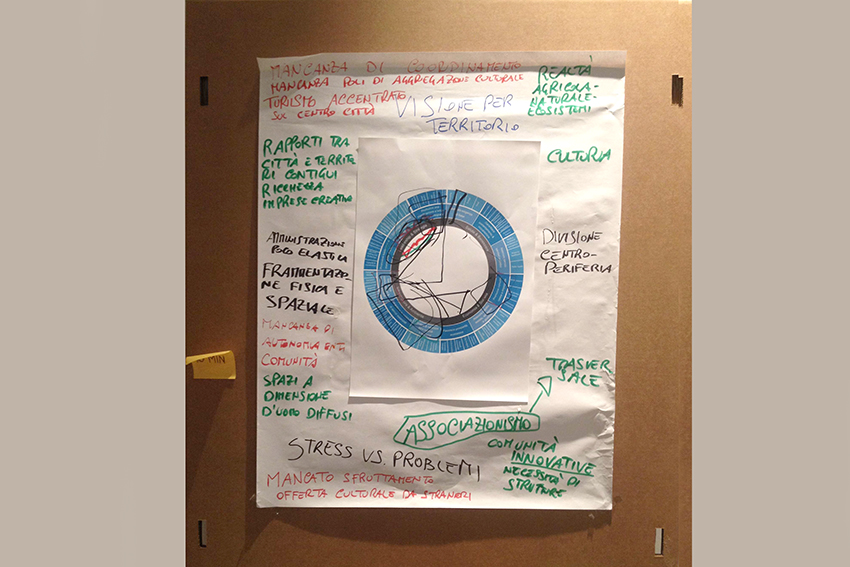 MANCANZA DI COORDINAMENTO
MANCANZA POLI DI AGGREGAZIONE CULTURALE
TURISMO ACCENTRATO
SUL CENTRO CITTÀ
VISIONE PER
TERRITORIO
REALTÀ
AGRICOLA-
NATURALE-
ECOSISTEMI
RAPPORTI TRA
CITTÀ E TERRITO
RI CONTIGUI
RICCHEZZA
IMPRESE CREATIVE
CULTURA
AMMINISTRAZIONE
POCO ELASTICA
FRAMMENTAZIO
NE FISICA E
SPAZIALE
DIVISIONE
CENTRO-
PERIFERIA
MANCANZA DI
AUTONOMIA ENTI
COMUNITÀ
SPAZI A
DIMENSIONE
D'UOMO DIFFUSI
MIN
TRASVER
SALE
ASSOCIAZIONISMO
STRESS VS. PROBLEMI
COMUNITÀ
INNOVATIVE
NECESSITÀ DI
STRUTTURE
MANCATO SFRUTTAMENTO
OFFERTA CULTURALE DA STRANIERI